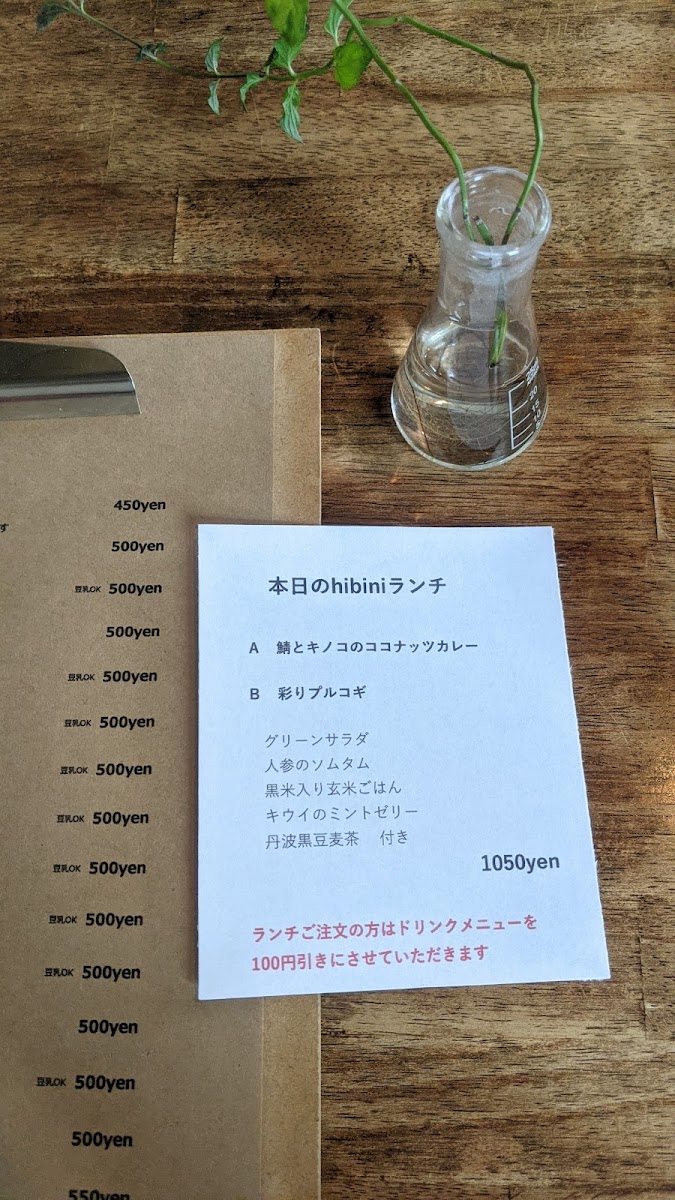 450yen
す
500yen
豆乳OK 500yen
500yen
豆乳OK 500yen
豆乳OK 500yen
豆乳OK 500yen
豆乳OK 500yen
豆乳OK 500yen
豆乳OK 500yen
豆乳OK 500yen
500yen
豆乳OK 500yen
500yen
550yen
本日のhibiniランチ
A 鯖とキノコのココナッツカレー
B 彩りプルコギ
グリーンサラダ
人参のソムタム
黒米入り玄米ごはん
キウイのミントゼリー
丹波黒豆麦茶 付き
1050yen
ランチご注文の方はドリンクメニューを
100円引きにさせていただきます